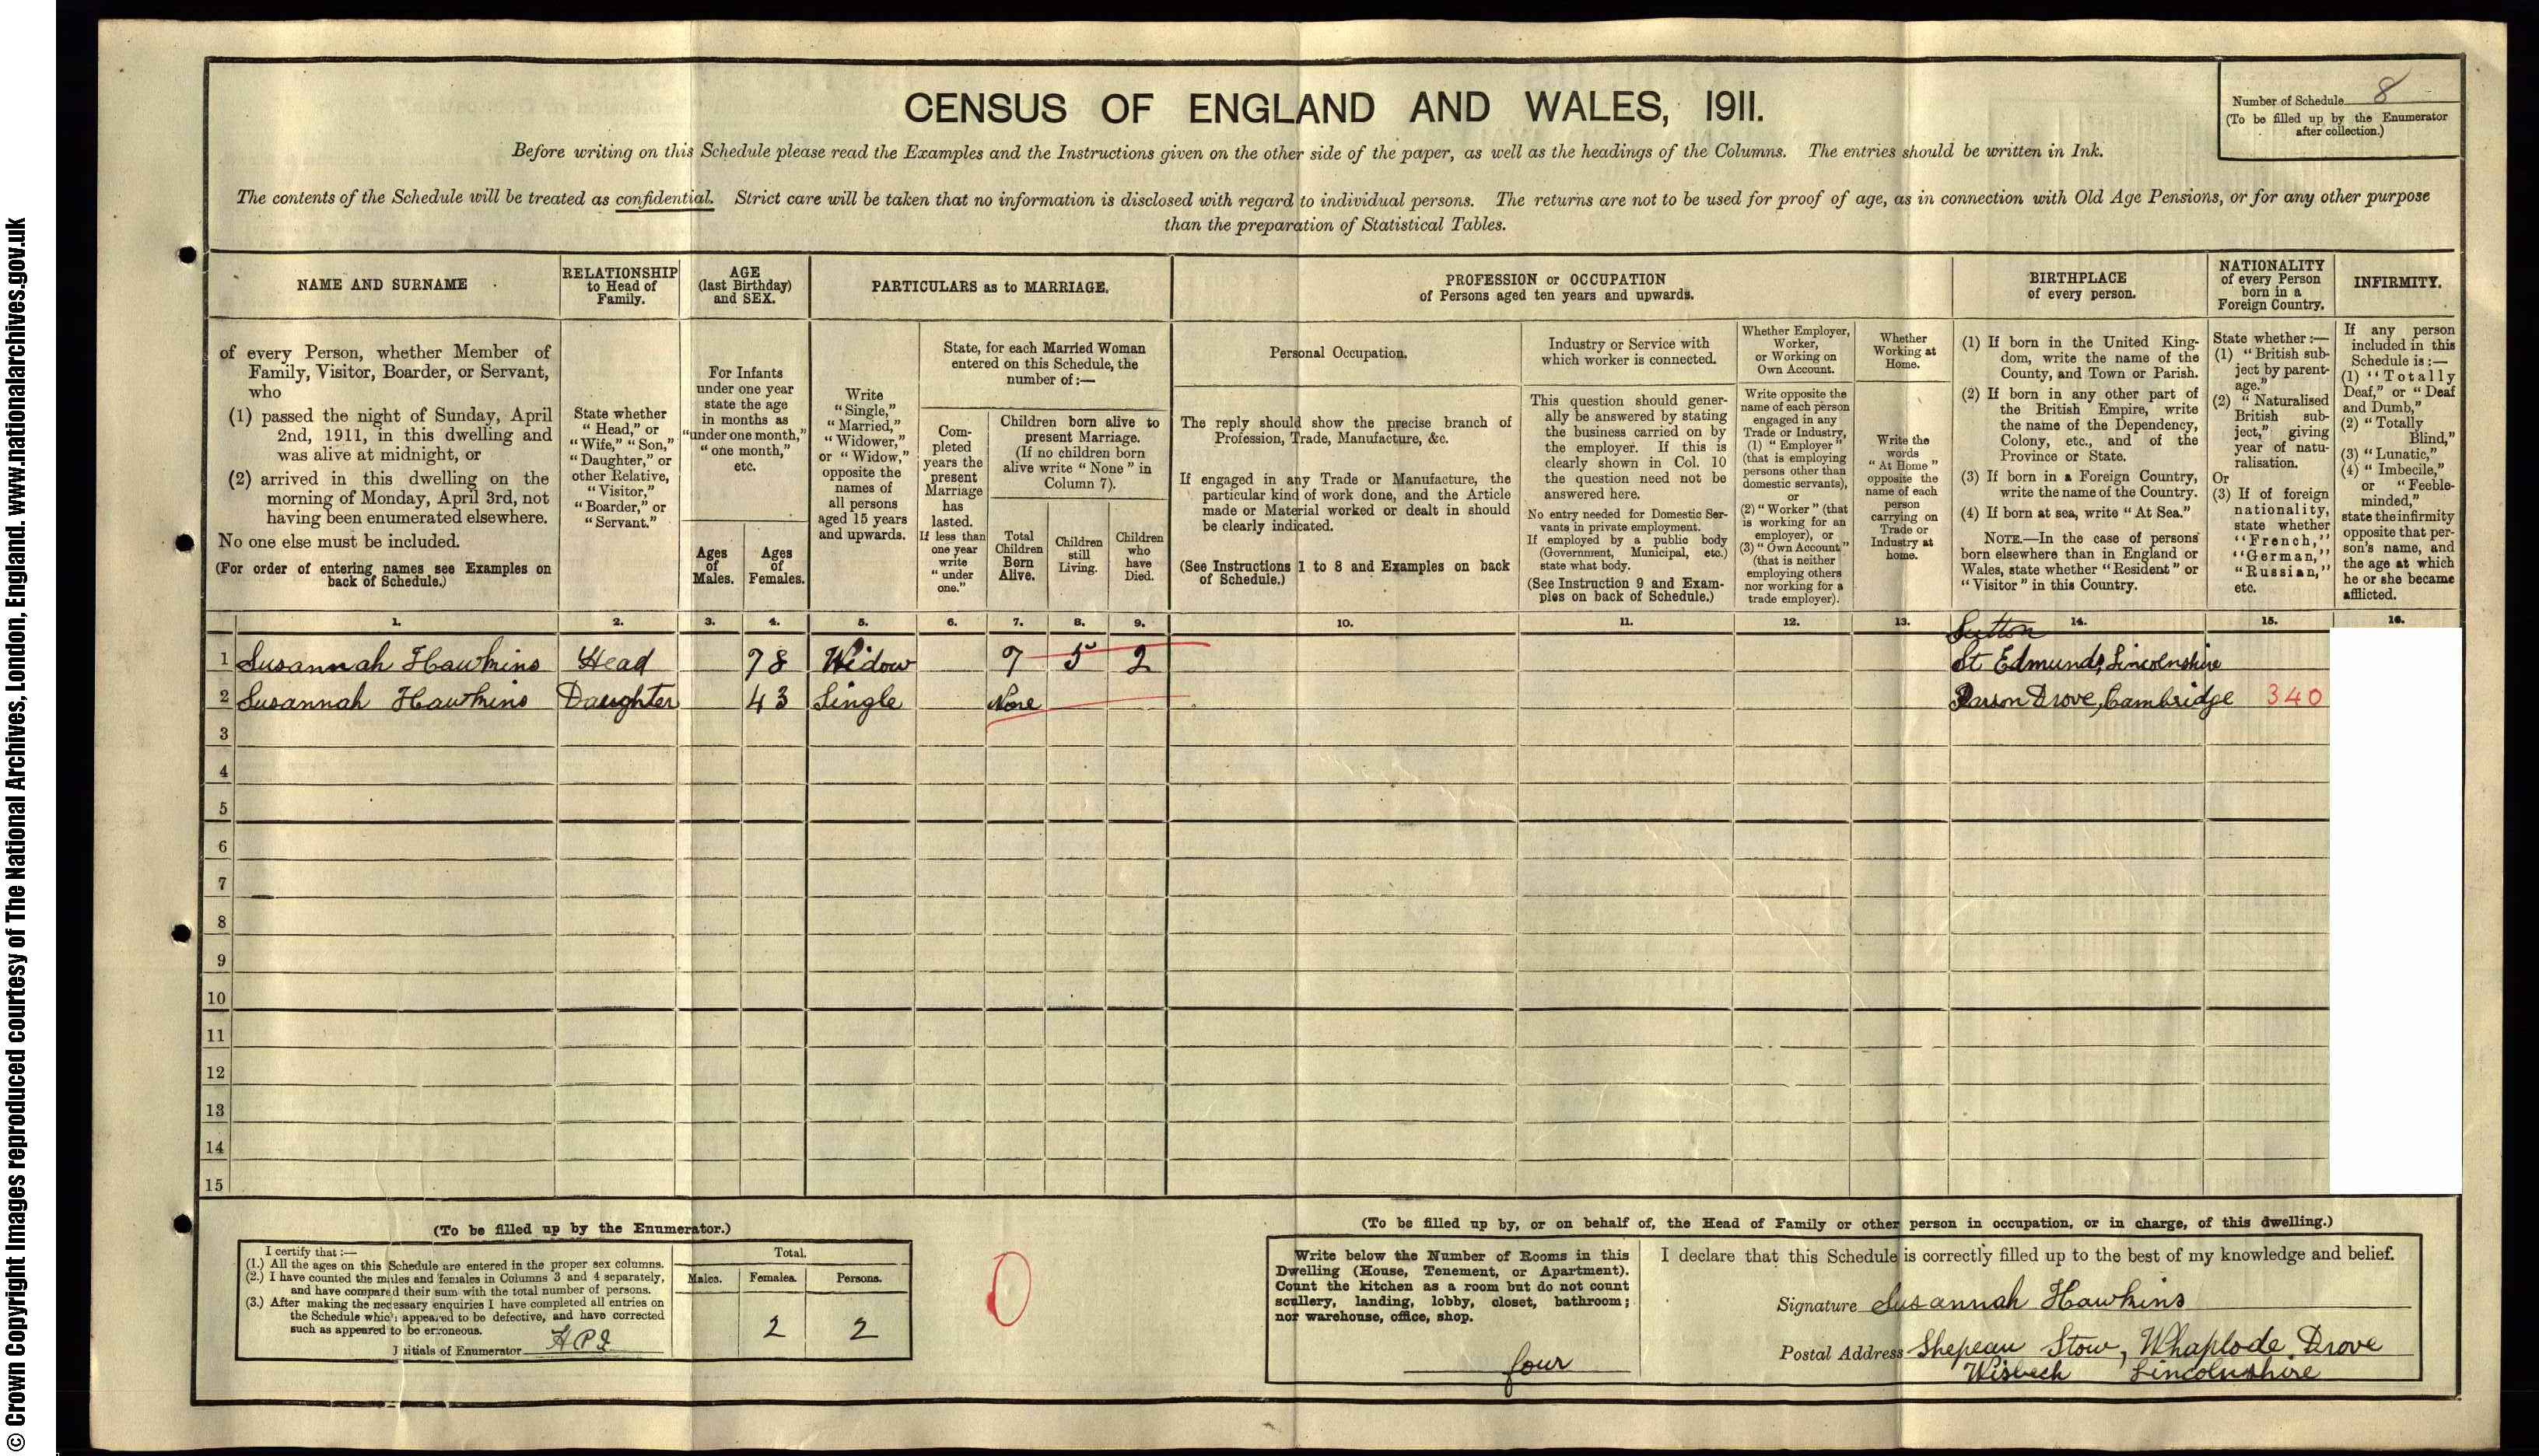 © Crown Copyright Images reproduced courtesy of The National Archives, London, England. www.nationalarchives.gov.uk
CENSUS OF ENGLAND AND WALES, 1911.
Number of Schedule 8
(To be filled up by the Enumerator
after collection.)
Before writing on this Schedule please read the Examples and the Instructions given on the other side of the paper, as well as the headings of the Columns. The entries should be written in Ink.
The contents of the Schedule will be treated as confidential. Strict care will be taken that no information is disclosed with regard to individual persons. The returns are not to be used for proof of age, as in connection with Old Age Pensions, or for any other purpose
than the preparation of Statistical Tables.
NAME AND SURNAME
of every Person, whether Member of
Family, Visitor, Boarder, or Servant,
who
(1) passed the night of Sunday, April
2nd, 1911, in this dwelling and
was alive at midnight, or
(2) arrived in this dwelling on the
morning of Monday, April 3rd, not
having been enumerated elsewhere.
No one else must be included.
(For order of entering names see Examples on
back of Schedule.)
RELATIONSHIP
to Head of
Family.
State whether
"Head," or
"Wife," "Son,"
"Daughter," or
other Relative,
"Visitor,"
"Boarder," or
"Servant."
AGE
(last Birthday)
and SEX.
For Infants
under one year
state the age
in months as
"under one month,"
"one month,"
etc.
Ages
of
Males.
Ages
of
Females.
PARTICULARS as to MARRIAGE.
Write
"Single,"
"Married,"
"Widower,"
or "Widow,"
opposite the
names of
all persons
aged 15 years
and upwards.
State, for each Married Woman
entered on this Schedule, the
number of:—
Com-
pleted
years the
present
Marriage
has
lasted.
If less than
one year
write
"under
one."
Children born alive to
present Marriage.
(If no children born
alive write "None" in
Column 7).
Total
Children
Born
Alive.
Children
still
Living.
Children
who
have
Died.
PROFESSION or OCCUPATION
of Persons aged ten years and upwards.
Personal Occupation.
The reply should show the precise branch of
Profession, Trade, Manufacture, &c.
If engaged in any Trade or Manufacture, the
particular kind of work done, and the Article
made or Material worked or dealt in should
be clearly indicated.
(See Instructions 1 to 8 and Examples on back
of Schedule.)
Industry or Service with
which worker is connected.
This question should gener-
ally be answered by stating
the business carried on by
the employer. If this is
clearly shown in Col. 10
the question need not be
answered here.
No entry needed for Domestic Ser-
vants in private employment.
If employed by a public body
(Government, Municipal, etc.)
state what body.
(See Instruction 9 and Exam-
ples on back of Schedule.)
Whether Employer,
Worker,
or Working on
Own Account.
Write opposite the
name of each person
engaged in any
Trade or Industry,
(1) "Employer"
(that is employing
persons other than
domestic servants),
or
(2) "Worker" (that
is working for an
employer), or
(3) "Own Account"
(that is neither
employing others
nor working for a
trade employer).
Whether
Working at
Home.
Write the
words
"At Home"
opposite the
name of each
person
carrying on
Trade or
Industry at
home.
BIRTHPLACE
of every person.
(1) If born in the United King-
dom, write the name of the
County, and Town or Parish.
(2) If born in any other part of
the British Empire, write
the name of the Dependency,
Colony, etc., and of the
Province or State.
(3) If born in a Foreign Country,
write the name of the Country.
(4) If born at sea, write "At Sea."
NOTE.—In the case of persons
born elsewhere than in England or
Wales, state whether "Resident" or
"Visitor" in this Country.
NATIONALITY
of every Person
born in a
Foreign Country.
State whether:—
(1) "British sub-
ject by parent-
age."
(2) "Naturalised
British sub-
ject," giving
year of natu-
ralisation.
Or
(3) If of foreign
nationality,
state whether
"French,"
"German,"
"Russian,"
etc.
INFIRMITY.
If any person
included in this
Schedule is:—
(1) "Totally
Deaf," or "Deaf
and Dumb,"
(2) "Totally
Blind,"
(3) "Lunatic,"
(4) "Imbecile,"
or "Feeble-
minded,"
state the infirmity
opposite that per-
son's name, and
the age at which
he or she became
afflicted.
1. 2. 3. 4. 5. 6. 7. 8. 9. 10. 11. 12. 13. 14. 15. 16.
Sutton
1 Susannah Hawkins Head 78 Widow 7 5 2 St Edmunds, Lincolnshire
2 Susannah Hawkins Daughter 43 Single None Parson Drove, Cambridge 340
3
4
5
6
7
8
9
10
11
12
13
14
15
(To be filled up by the Enumerator.)
I certify that:—
(1.) All the ages on this Schedule are entered in the proper sex columns.
(2.) I have counted the males and females in Columns 3 and 4 separately,
and have compared their sum with the total number of persons.
(3.) After making the necessary enquiries I have completed all entries on
the Schedule which appeared to be defective, and have corrected
such as appeared to be erroneous.
Initials of Enumerator
Total.
Males. Females. Persons.
2 2
0
(To be filled up by, or on behalf of, the Head of Family or other person in occupation, or in charge, of this dwelling.)
Write below the Number of Rooms in this
Dwelling (House, Tenement, or Apartment).
Count the kitchen as a room but do not count
scullery, landing, lobby, closet, bathroom;
nor warehouse, office, shop.
four
I declare that this Schedule is correctly filled up to the best of my knowledge and belief.
Signature Susannah Hawkins
Postal Address Shepeau Stow, Whaplode Drove
Wisbech Lincolnshire